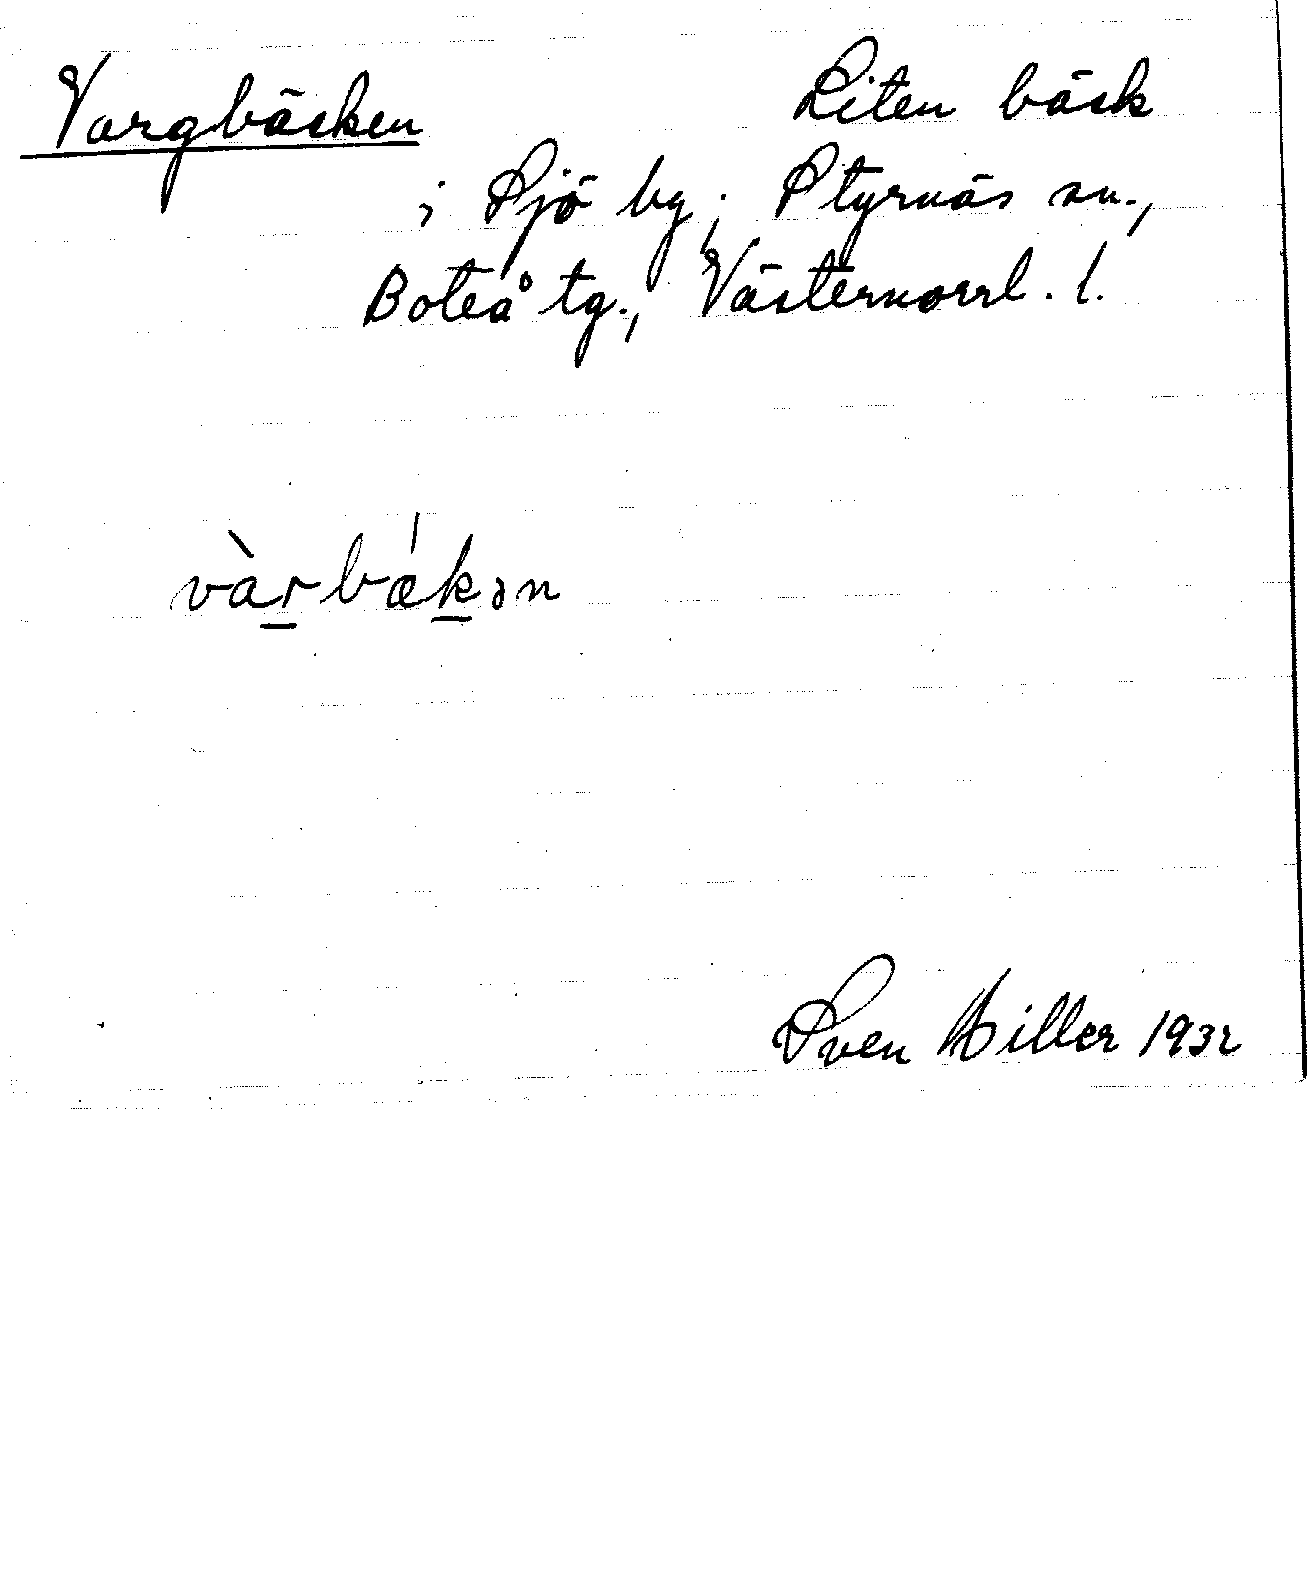 Vargbäcken Liten bäck
i Sjö by; Styrnäs sn.,
Boteå tg., Västernorrl. l.
vàr̲bǽk̲ən
Sven Hiller 1932